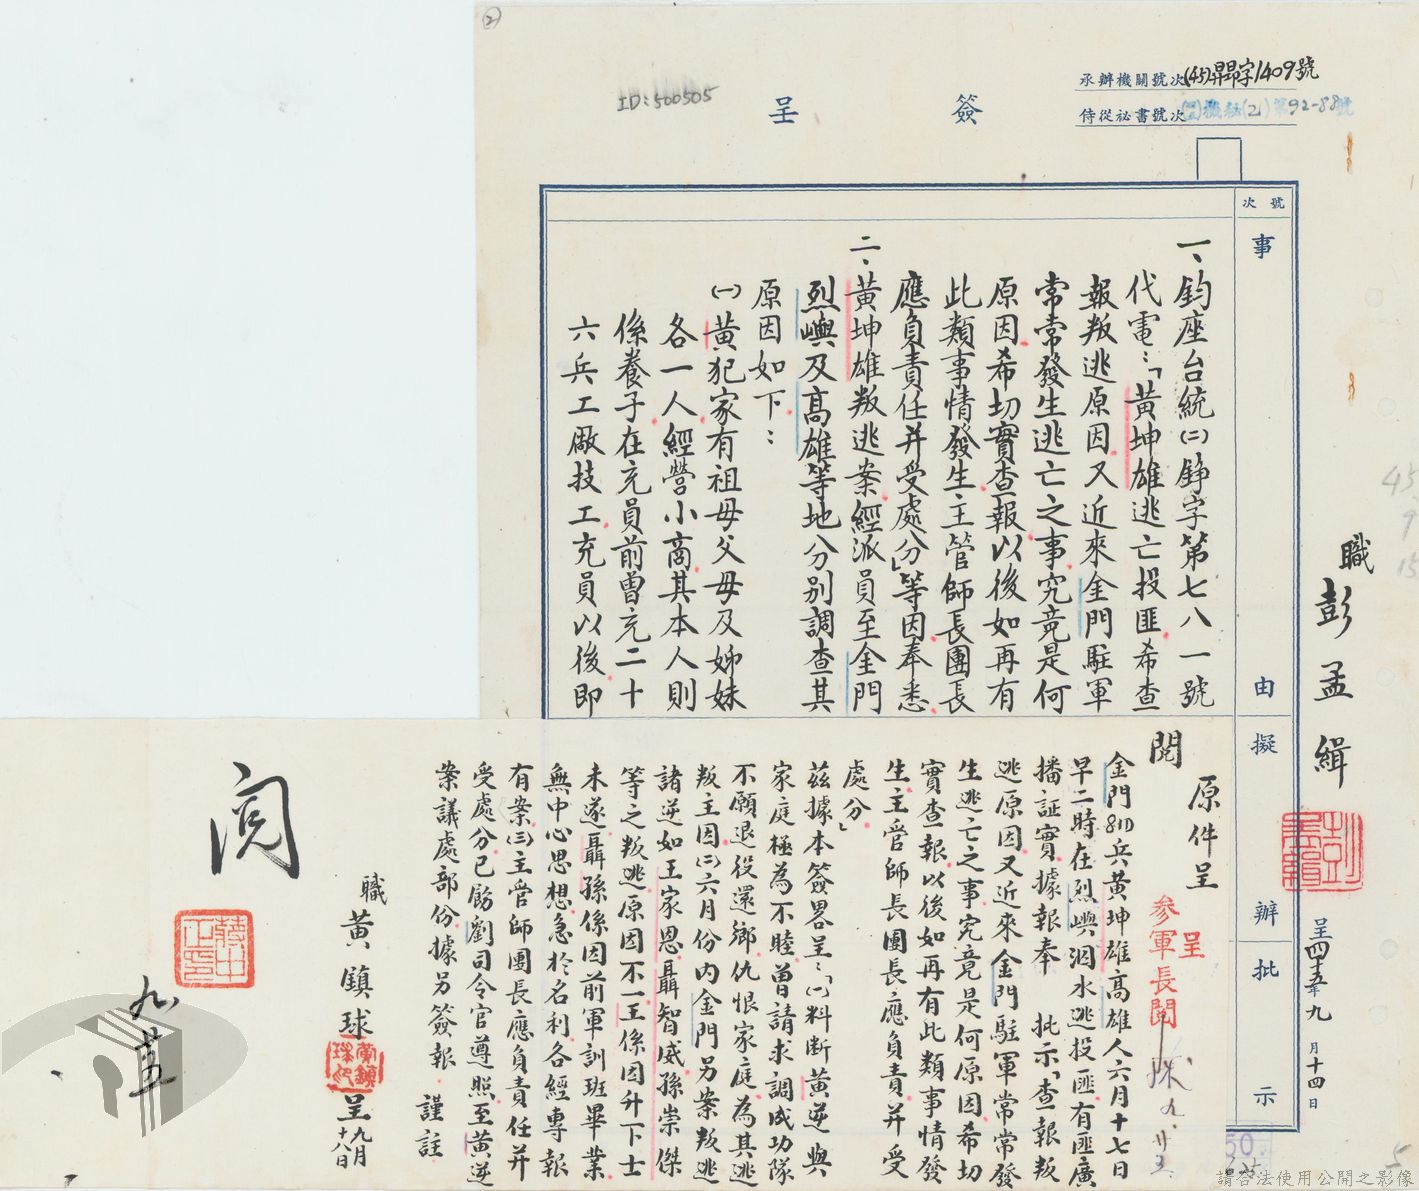 承辦機關號次(45)昇昂字1409號
侍從祕書號次機秘(乙)第92-88號
簽呈
ID:500505
號次
事由
擬辦
批示
一、鈞座台統㈡錚字第七八一號
代電:「黃坤雄逃亡投匪希查
報叛逃原因又近來金門駐軍
常常發生逃亡之事究竟是何
原因希切實查報以後如再有
此類事情發生主管師長團長
應負責任并受處分」等因奉悉
二、黃坤雄叛逃案經派員至金門
烈嶼及高雄等地分別調查其
原因如下:
㈠黃犯家有祖母父母及姊妹
各一人經營小商其本人則
係養子在充員前曾充二十
六兵工廠技工充員以後即
職彭孟緝
呈四十五年九月十四日
原件呈
閱
呈
參軍長閱
金門81D兵黃坤雄高雄人六月十七日
早二時在烈嶼泅水逃投匪有匪廣
播証實據報奉 批示「查報叛
逃原因又近來金門駐軍常常發
生逃亡之事究竟是何原因希切
實查報以後如再有此類事情發
生主管師長團長應負責并受
處分」
茲據本簽畧呈:「㈠料斷黃逆與
家庭極為不睦曾請求調成功隊
不願退役還鄉仇恨家庭為其逃
叛主因㈡六月份內金門另案叛逃
諸逆如王家恩聶智威孫崇傑
等之叛逃原因不一王係因升下士
未遂聶孫係因前軍訓班畢業
無中心思想急於名利各經專報
有案㈢主管師團長應負責任并
受處分已飭劉司令官遵照至黃逆
案議處部份據另簽報 謹註
職黃鎮球呈九月十八日
閱
九廿五
50.
請合法使用公開之影像